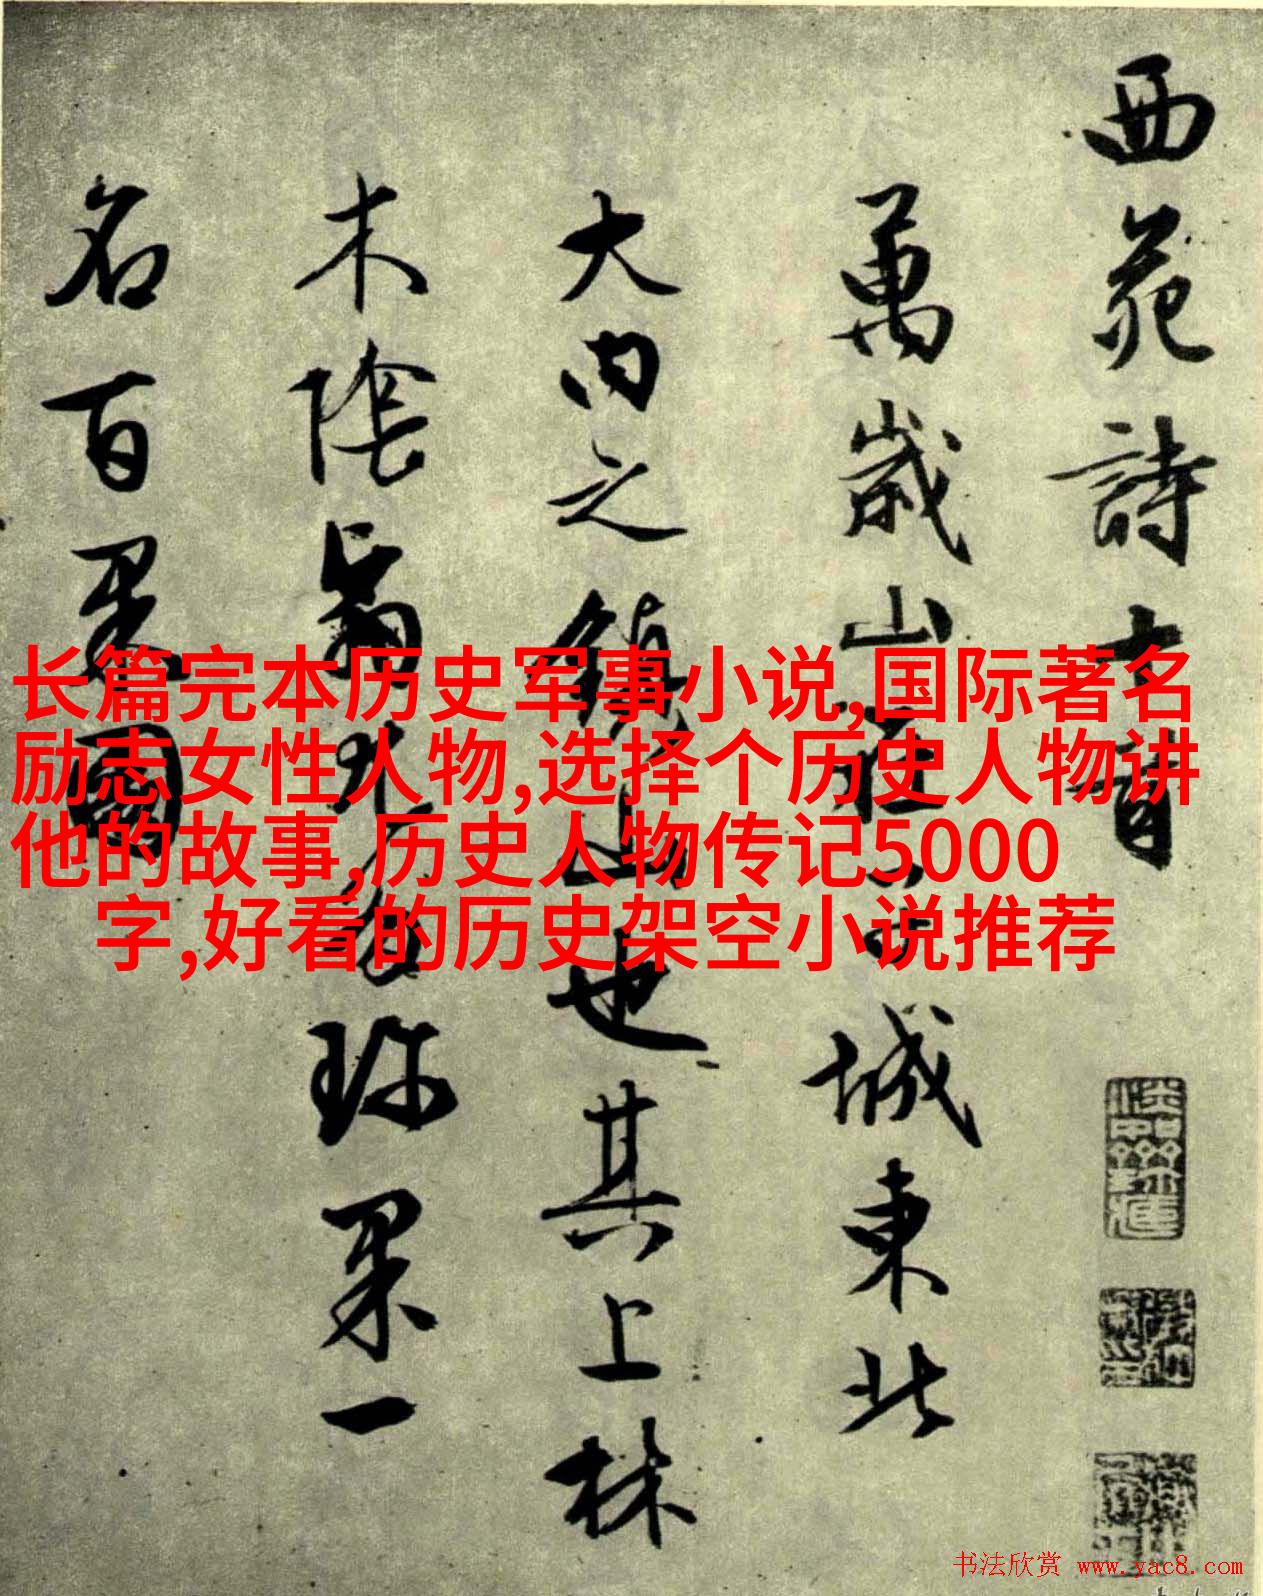 西苑詩十首
萬歲山在子城東北
大内之鎮山也其上林
木陰翳尤多珍果一
名百果園
长篇完本历史军事小说,国际著名
励志女性人物,选择个历史人物讲
他的故事,历史人物传记5000
字,好看的历史架空小说推荐
书法欣赏 www.yac8.com